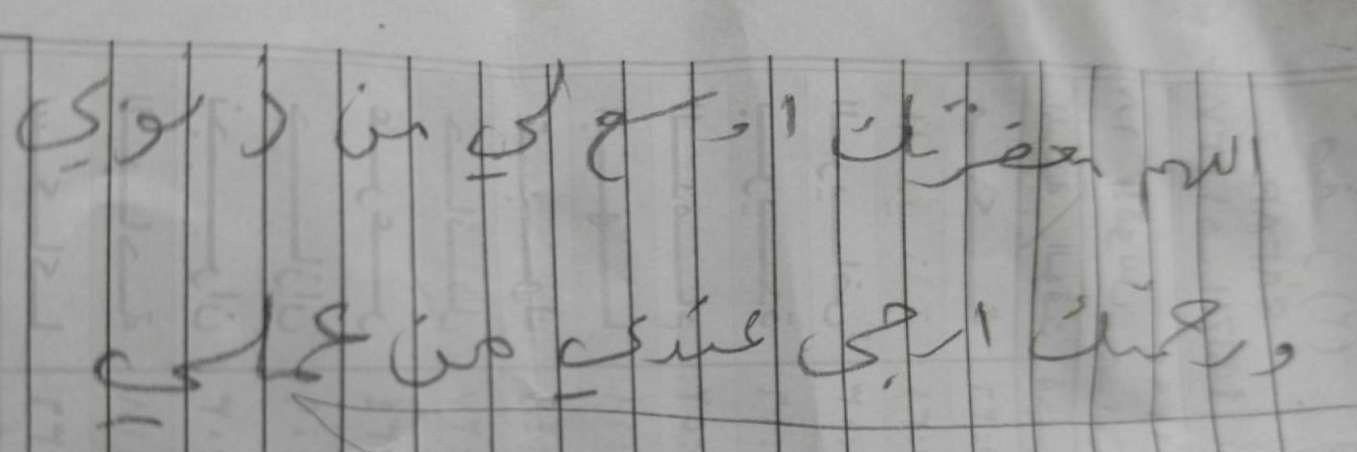 اللهم مغفرتك اوسع لي من ذنوبي
ورحمتك ارجى عندي من عملي